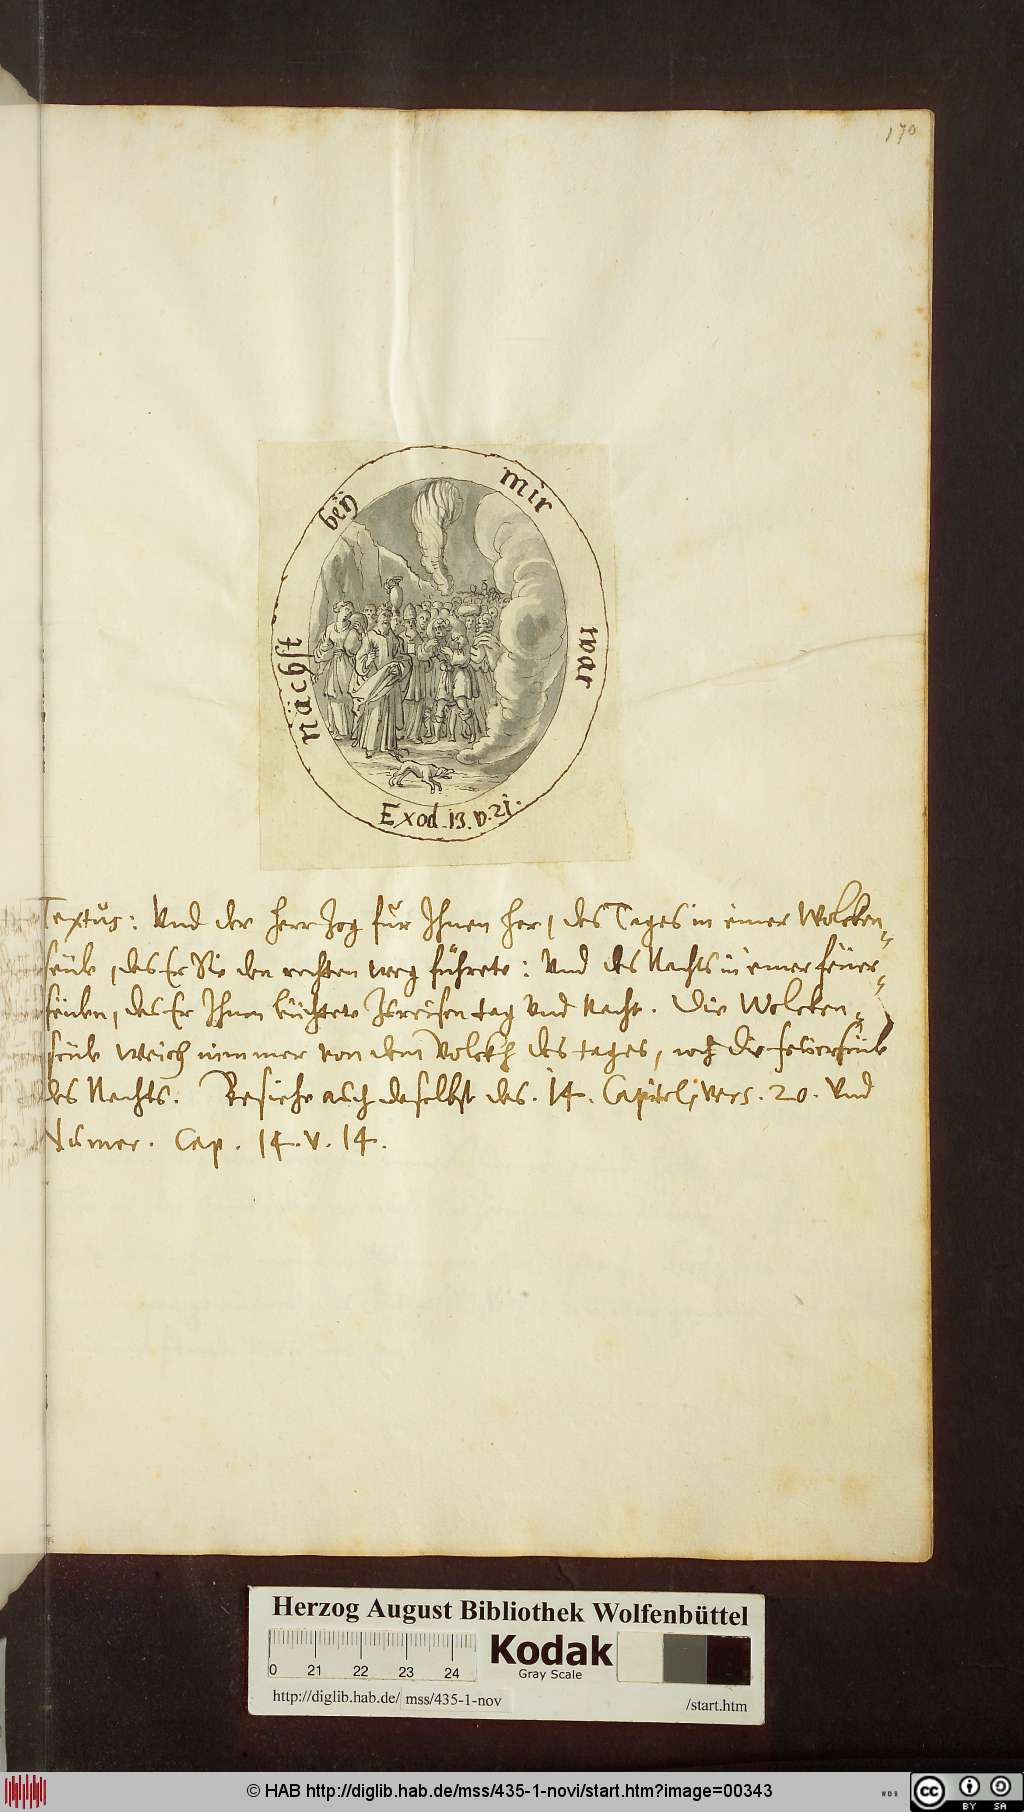 170
nächst beÿ mir war
Exod. 13. v. 21.
Textus: Vnd der Herr Zog für Ihnen her, des Tages in einer Wolcken„
seüle, das Er Sie den rechten weg führete: Vnd des Nachts in einer feüer„
seülen, das Er Ihnen leüchtete Zu reisen tag Vnd Nacht. Die Wolcken„
seüle Weich nimmer von dem Volckh des tages, noch die feüerseüle
des Nachts. Besiehe auch daselbst das. 14. Capitel, vers. 20. Vnd
Numer. Cap. 14. v. 14.
Herzog August Bibliothek Wolfenbüttel
Kodak
Gray Scale
0 21 22 23 24
http://diglib.hab.de/ mss/435-1-nov /start.htm
© HAB http://diglib.hab.de/mss/435-1-novi/start.htm?image=00343
WDB
cc BY SA